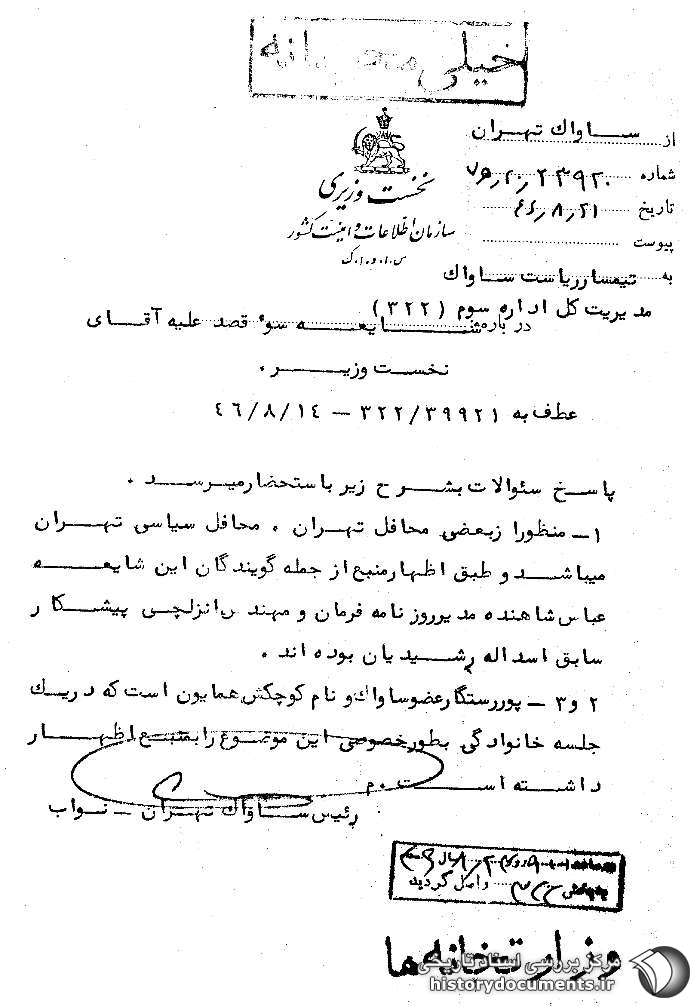 خیلی محرمانه
از ساواك تهران
شماره ۲۳۹۲۰/ ۲۰
تاریخ ۴۶/۸/۲۱
پیوست
نخست وزیری
سازمان اطلاعات و امنیت کشور
س.ا.و.ا.ک
به تیمسار ریاست ساواك
مدیریت کل اداره سوم (۳۲۲)
درباره شایعه سوء قصد علیه آقای
نخست وزیر .
عطف به ۳۲۲/۳۹۹۲۱ – ۴۶/۸/۱۴
پاسخ سئوالات بشرح زیر باستحضار میرسد .
۱– منظور از بعضی محافل تهران . محافل سیاسی تهران
میباشد و طبق اظهار منبع از جمله گویندگان این شایعه
عباس شاهنده مدیر روزنامه فرمان و مهندس انزلچی پیشکار
سابق اسداله رشیدیان بوده اند .
۲ و ۳ – پوررستگار عضو ساواك و نام کوچکش همایون است که در یك
جلسه خانوادگی بطور خصوصی این موضوع را بمنبع اظهار
داشته است . م
رئیس ساواك تهران – نواب
واصل گردید
وزارتخانه ها
مرکز بررسی اسناد تاریخی
historydocuments.ir